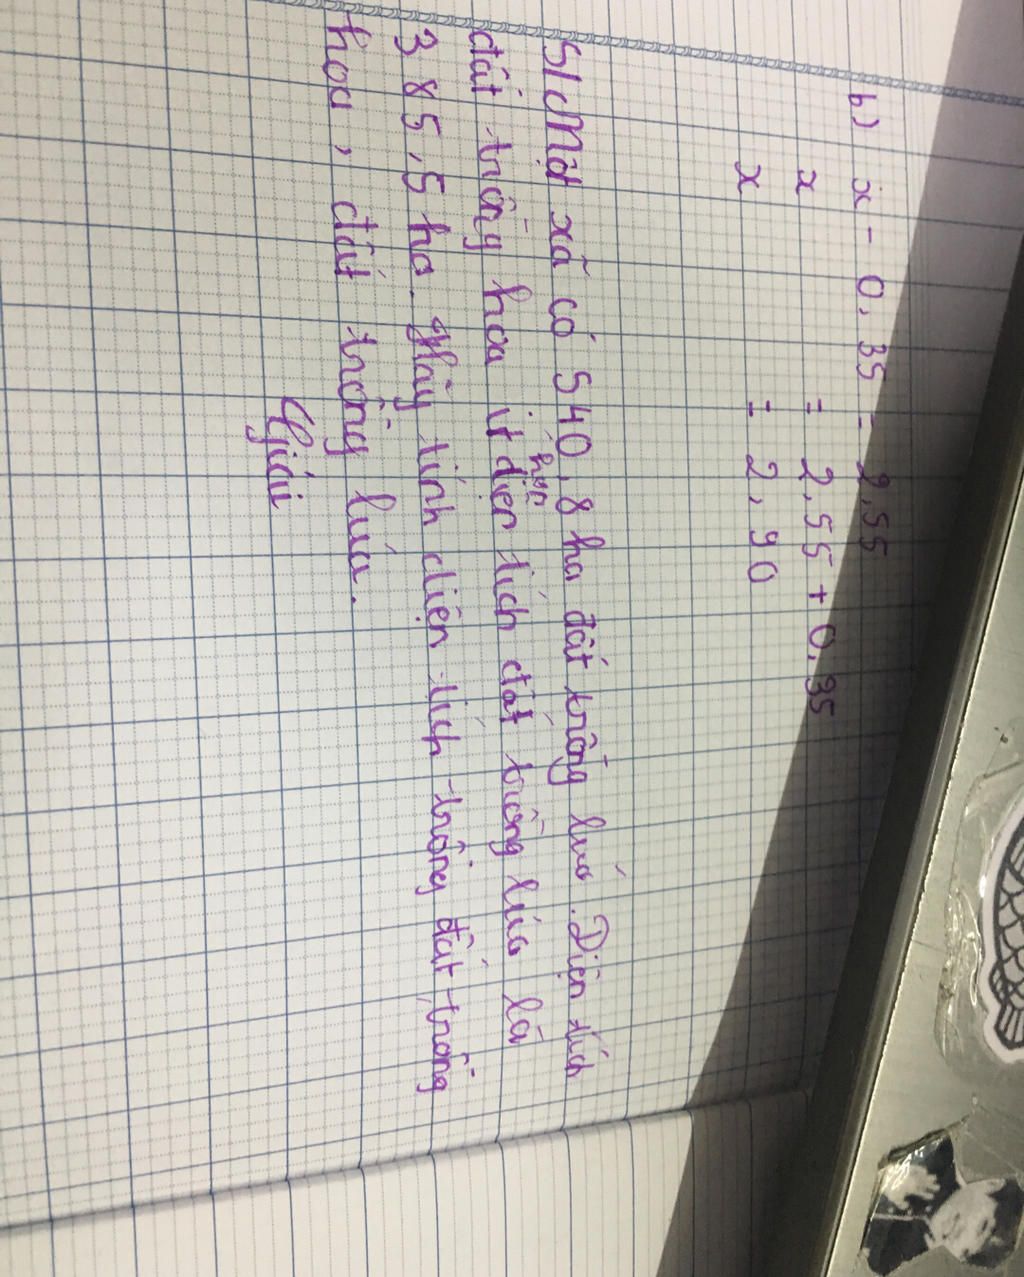 b) x - 0,35 = 2,55
x = 2,55 + 0,35
x = 2,90
5/ Một xã có 540,8 ha đất trồng lúa. Diện tích
đất trồng hoa ít hơn diện tích đất trồng lúa là
385,5 ha. Hãy tính diện tích trồng đất trồng
hoa, đất trồng lúa.
Giải